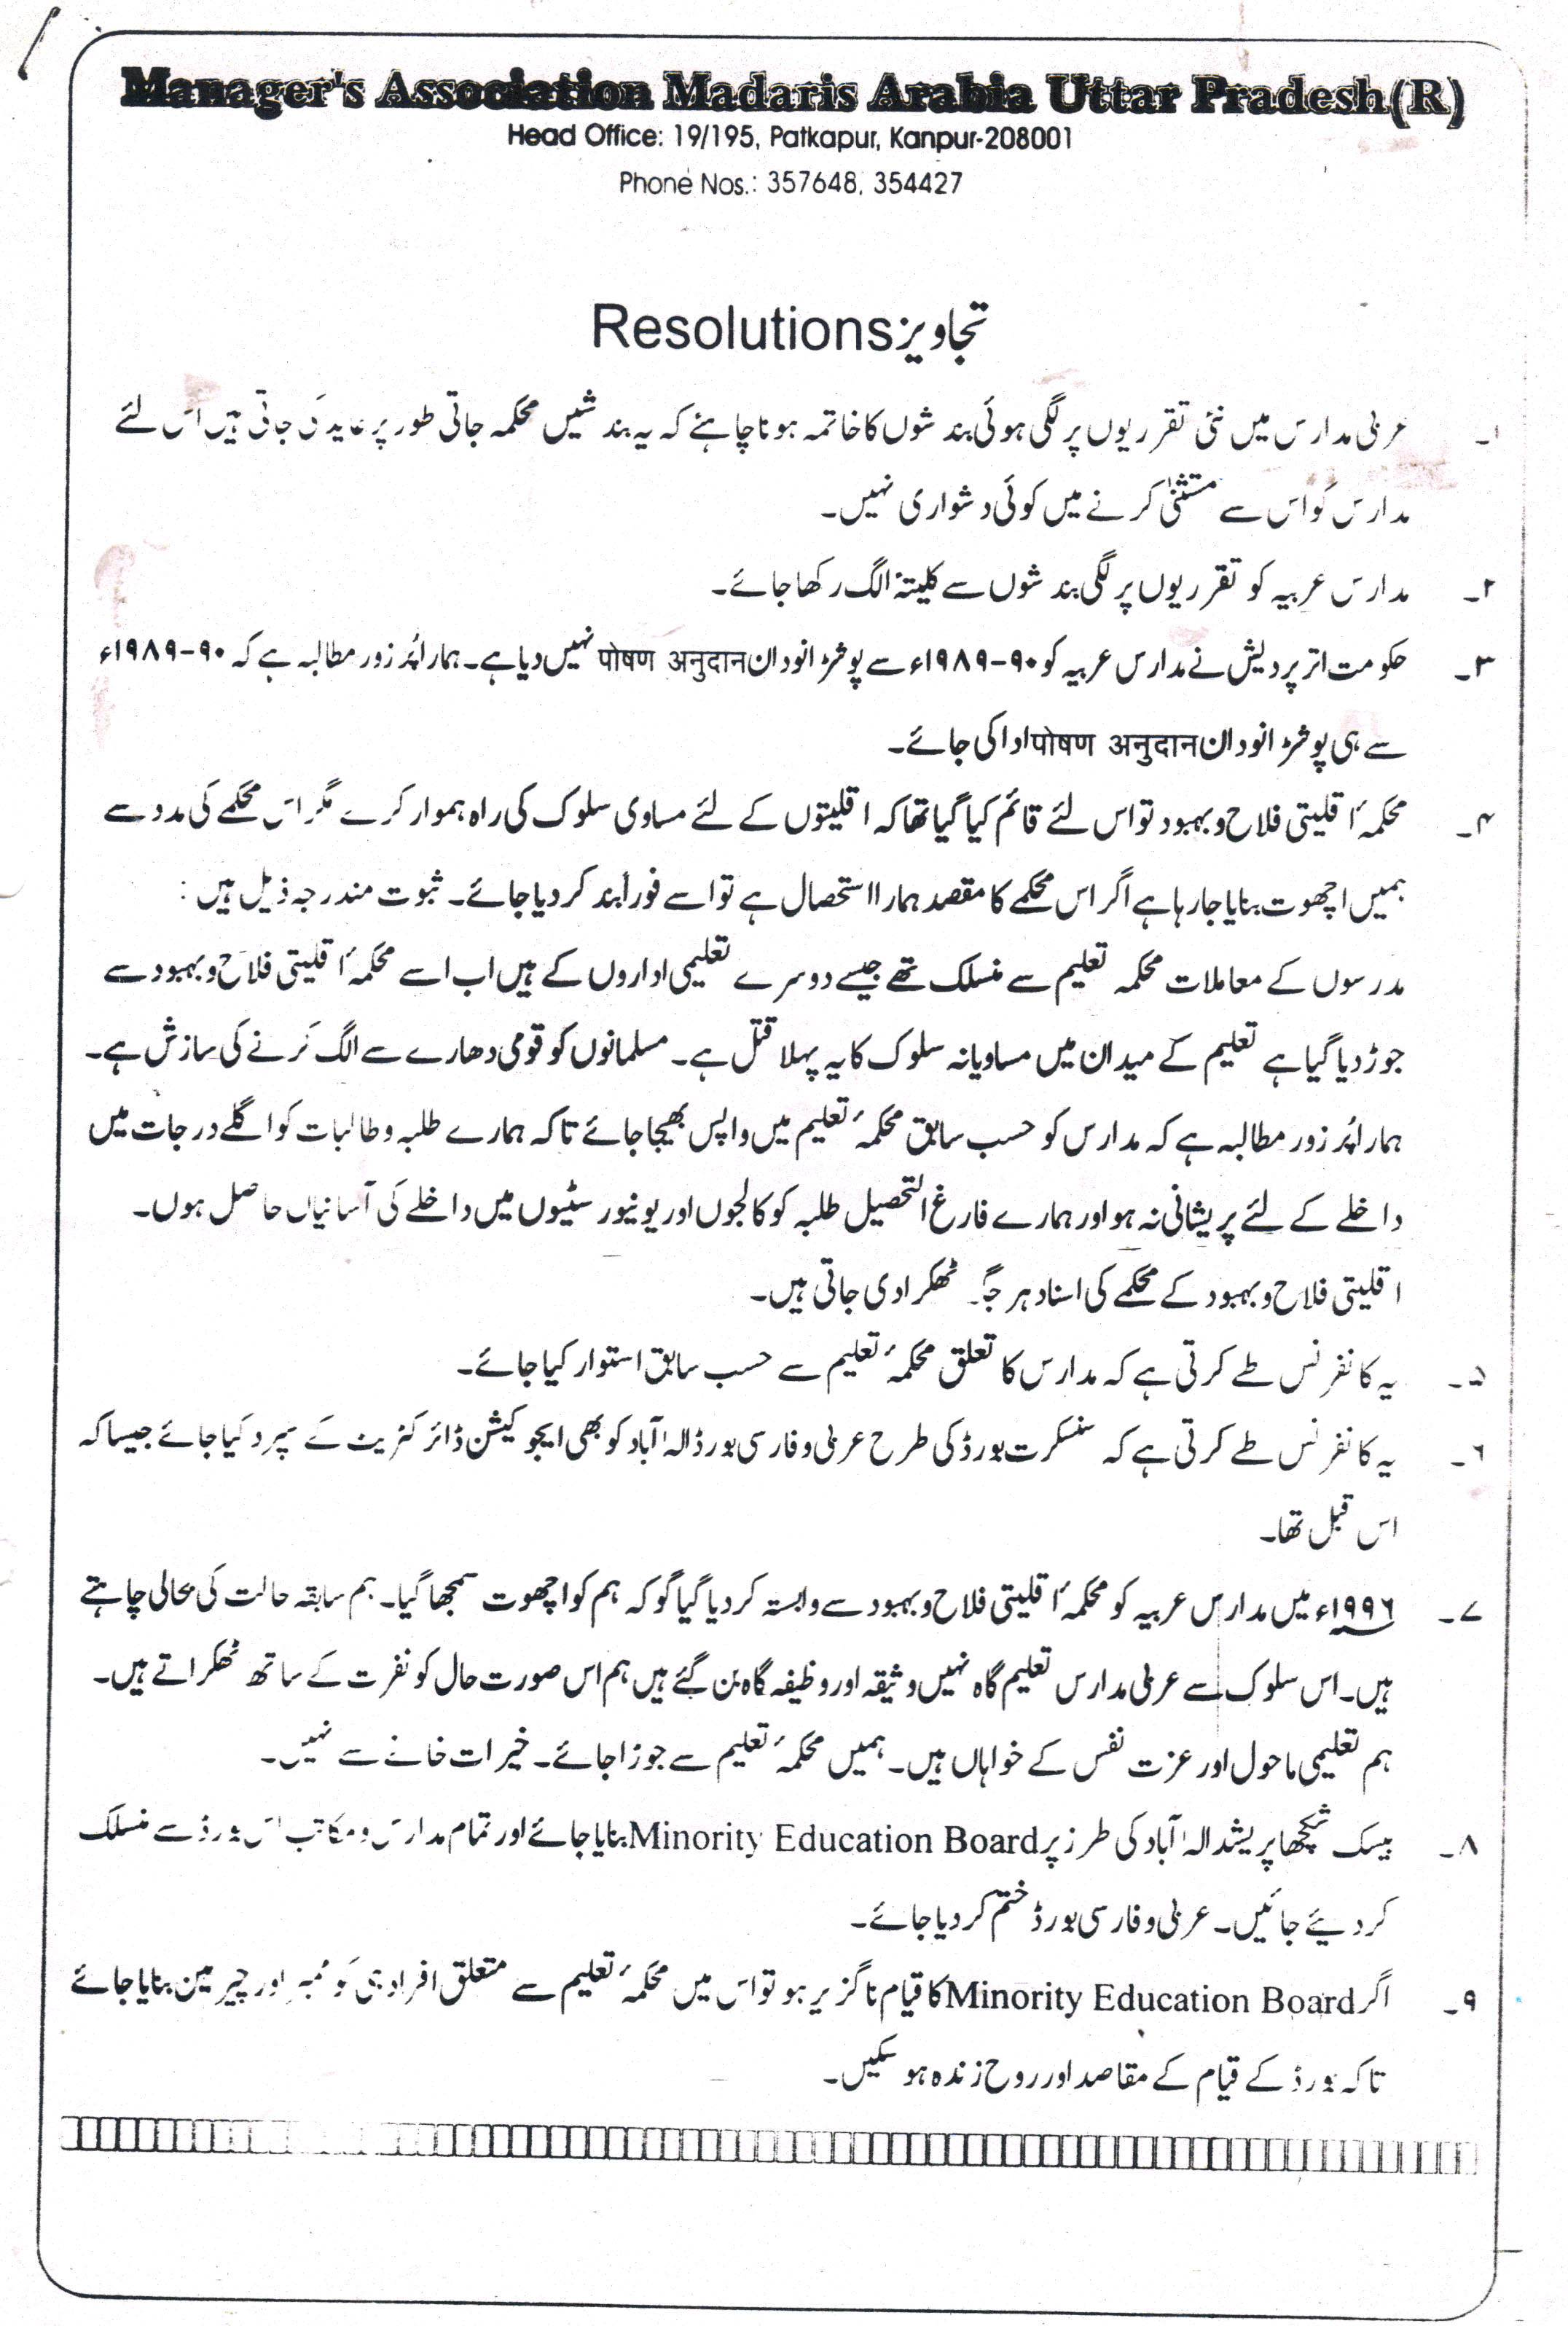 Manager's Association Madaris Arabia Uttar Pradesh(R)
Head Office: 19/195, Patkapur, Kanpur-208001
Phone Nos.: 357648, 354427
تجاویز Resolutions
۱۔ عربی مدارس میں نئی تقرریوں پر لگی ہوئی بندشوں کا خاتمہ ہونا چاہئے کہ یہ بندشیں محکمہ جاتی طور پر عاید کی جاتی ہیں اس لئے
مدارس کو اس سے مستثنیٰ کرنے میں کوئی دشواری نہیں۔
۲۔ مدارس عربیہ کو تقرریوں پر لگی بندشوں سے کلیتہً الگ رکھا جائے۔
۳۔ حکومت اتر پردیش نے مدارس عربیہ کو ۹۰-۱۹۸۹ء سے پوشڑ انودان पोषण अनुदान نہیں دیا ہے۔ ہمارا پُر زور مطالبہ ہے کہ ۹۰-۱۹۸۹ء
سے ہی پوشڑ انودان पोषण अनुदान ادا کی جائے۔
۴۔ محکمۂ اقلیتی فلاح و بہبود تو اس لئے قائم کیا گیا تھا کہ اقلیتوں کے لئے مساوی سلوک کی راہ ہموار کرے مگر اس محکمے کی مدد سے
ہمیں اچھوت بنایا جا رہا ہے اگر اس محکمے کا مقصد ہمارا استحصال ہے تو اسے فوراً بند کر دیا جائے۔ ثبوت مندرجہ ذیل ہیں :
مدرسوں کے معاملات محکمہ تعلیم سے منسلک تھے جیسے دوسرے تعلیمی اداروں کے ہیں اب اسے محکمۂ اقلیتی فلاح و بہبود سے
جوڑ دیا گیا ہے تعلیم کے میدان میں مساویانہ سلوک کا یہ پہلا قتل ہے۔ مسلمانوں کو قومی دھارے سے الگ کرنے کی سازش ہے۔
ہمارا پُر زور مطالبہ ہے کہ مدارس کو حسب سابق محکمۂ تعلیم میں واپس بھیجا جائے تاکہ ہمارے طلبہ و طالبات کو اگلے درجات میں
داخلے کے لئے پریشانی نہ ہو اور ہمارے فارغ التحصیل طلبہ کو کالجوں اور یونیورسٹیوں میں داخلے کی آسانیاں حاصل ہوں۔
اقلیتی فلاح و بہبود کے محکمے کی اسناد ہر جگہ ٹھکرا دی جاتی ہیں۔
۵۔ یہ کانفرنس طے کرتی ہے کہ مدارس کا تعلق محکمۂ تعلیم سے حسب سابق استوار کیا جائے۔
۶۔ یہ کانفرنس طے کرتی ہے کہ سنسکرت بورڈ کی طرح عربی و فارسی بورڈ الہٰ آباد کو بھی ایجوکیشن ڈائرکٹریٹ کے سپرد کیا جائے جیسا کہ
اس قبل تھا۔
۷۔ ۱۹۹۶ء میں مدارس عربیہ کو محکمۂ اقلیتی فلاح و بہبود سے وابستہ کر دیا گیا گو کہ ہم کو اچھوت سمجھا گیا۔ ہم سابقہ حالت کی بحالی چاہتے
ہیں۔ اس سلوک سے عربی مدارس تعلیم گاہ نہیں وثیقہ اور وظیفہ گاہ بن گئے ہیں ہم اس صورت حال کو نفرت کے ساتھ ٹھکراتے ہیں۔
ہم تعلیمی ماحول اور عزت نفس کے خواہاں ہیں۔ ہمیں محکمۂ تعلیم سے جوڑا جائے۔ خیرات خانے سے نہیں۔
۸۔ بیسک شکچھا پریشد الہٰ آباد کی طرز پر Minority Education Board بنایا جائے اور تمام مدارس و مکاتب اس بورڈ سے منسلک
کر دیئے جائیں۔ عربی و فارسی بورڈ ختم کر دیا جائے۔
۹۔ اگر Minority Education Board کا قیام ناگزیر ہو تو اس میں محکمۂ تعلیم سے متعلق افراد ہی کو ممبر اور چیرمین بنایا جائے
تاکہ بورڈ کے قیام کے مقاصد اور روح زندہ ہو سکیں۔